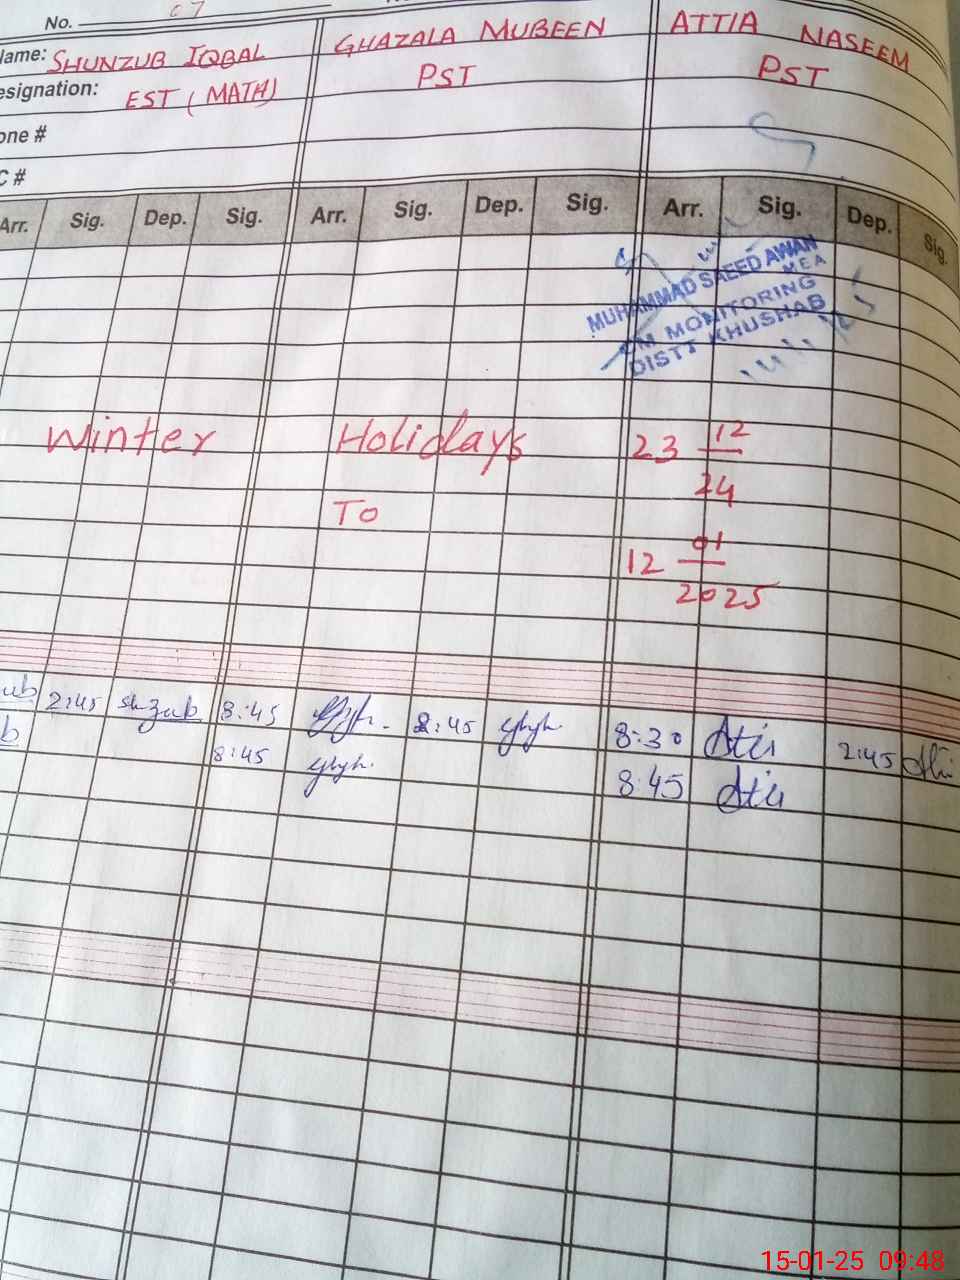 No. 07
Name: SHUNZUB IQBAL GHAZALA MUBEEN ATTIA NASEEM
esignation: EST (MATH) PST PST
one #
C #
Arr. Sig. Dep. Sig. Arr. Sig. Dep. Sig. Arr. Sig. Dep. Sig.
MUHAMMAD SAEED AWAN
MEA
MONITORING
DISTT KHUSHAB
Winter Holidays 23 12
24
To
12 01
2025
ub 2:45 Shzub 8:45 2:45 8:30 Atia 2:45
b 8:45 8:45 Atia
15-01-25 09:48